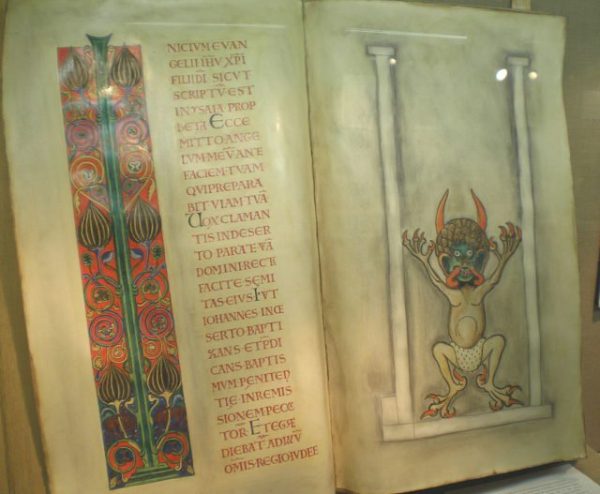 NICIUM EVAN
GELII IHU XPI
FILII DI SICUT
SCRIPTU EST
IN YSAIA PROP
HETA ECCE
MITTO ANGE
LUM MEUM ANTE
FACIEM TUAM
QUI PREPARA
BIT VIAM TUA
VOX CLAMAN
TIS IN DESER
TO PARATE VIA
DOMINI RECT
FACITE SEMI
TAS EIUS FUIT
IOHANNES IN
SERTO BAPTI
ZANS ET PDI
CANS BAPTIS
MUM PENITEN
TIE IN REMIS
SIONEM PECC
TOR ET EGR
DIEBAT AD
OMIS REGIO IUDEE